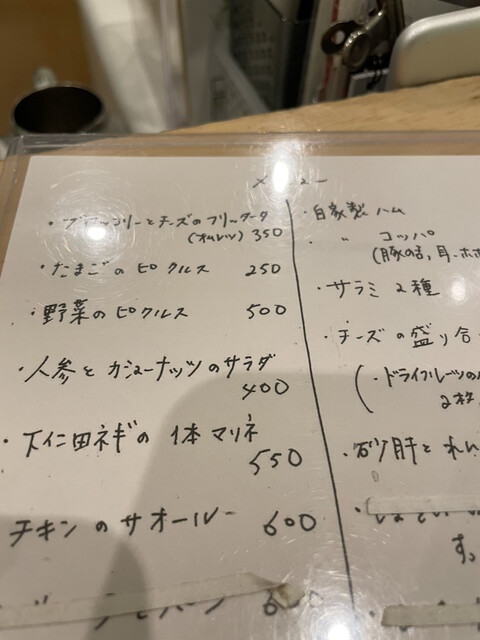 メニュー
・ブロッコリーとチーズのフリッタータ
(オムレツ) 350
・たまごのピクルス 250
・野菜のピクルス 500
・人参とカシューナッツのサラダ
400
・下仁田ネギの1本マリネ
550
チキンのサオール 600
・自家製ハム
・ 〃 コッパ
(豚の舌,耳,ホホ
・サラミ2種
・チーズの盛り合
(・ドライフルーツの
2枚
・砂肝とれん
す。